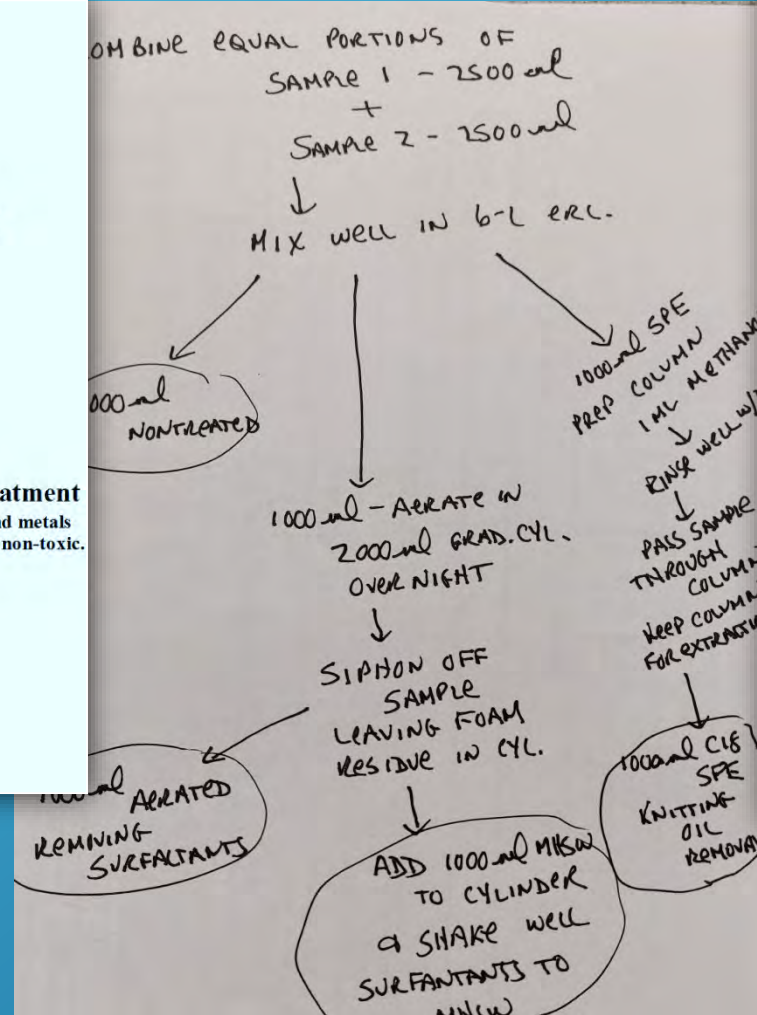 OMBINE EQUAL PORTIONS OF
SAMPLE 1 - 2500 ml
+
SAMPLE 2 - 2500 ml
MIX WELL IN 6-L ERL.
000 ml
NONTREATED
1000 ml - AERATE IN
2000 ml GRAD. CYL.
OVERNIGHT
SIPHON OFF
SAMPLE
LEAVING FOAM
RESIDUE IN CYL.
ml AERATED
REMIVING
SURFACTANTS
ADD 1000 ml MHSW
TO CYLINDER
& SHAKE WELL
SURFANTANTS TO
MHSW
1000 ml SPE
PREP COLUMN
1 ML METHAN
RINSE WELL W/
PASS SAMPLE
THROUGH
COLUMN
KEEP COLUMN
FOR EXTRACTI
1000 ml C18
SPE
KNITTING
OIL
REMOVA
atment
d metals
non-toxic.